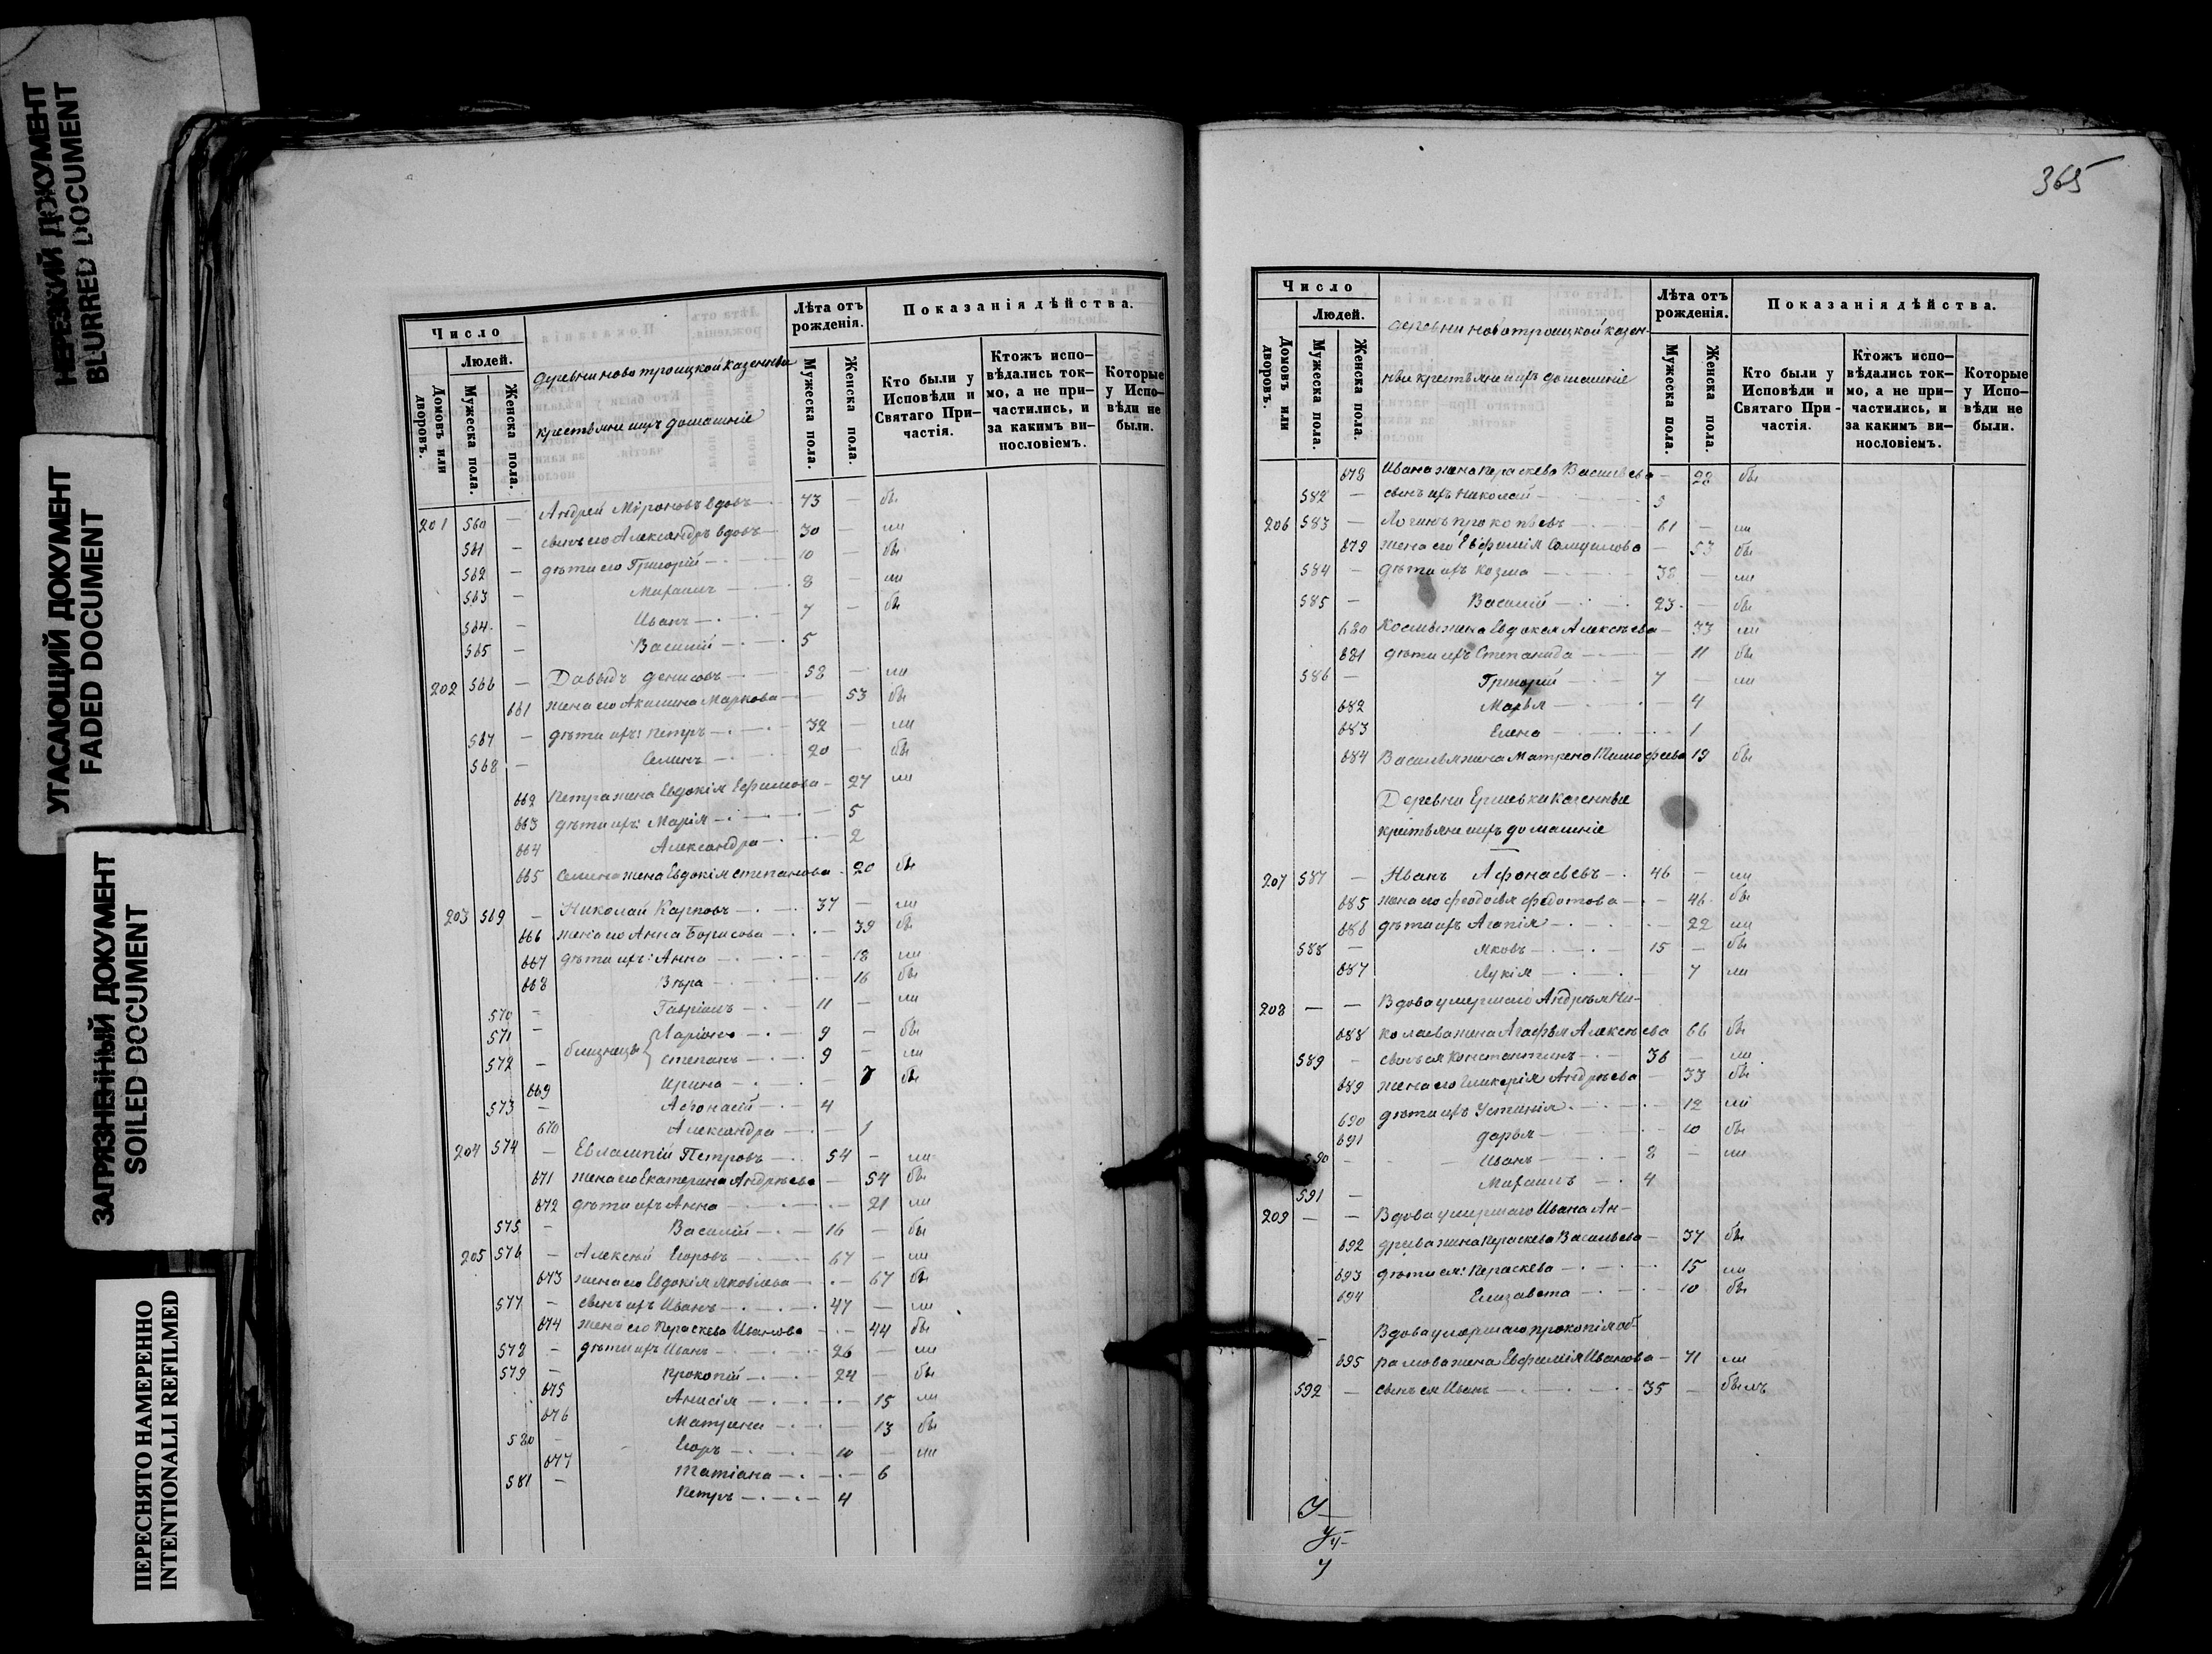 НЕРЕЗКИЙ ДОКУМЕНТ
BLURRED DOCUMENT
УГАСАЮЩИЙ ДОКУМЕНТ
FADED DOCUMENT
ЗАГРЯЗНЕННЫЙ ДОКУМЕНТ
SOILED DOCUMENT
ПЕРЕСНЯТО НАМЕРЕННО
INTENTIONALLI REFILMED
Число
Людей.
Домовъ или дворовъ.
Мужеска пола.
Женска пола.
деревни ново троицкой казенныи
крестьяне ихъ домашніе
Лѣта отъ рожденія.
Мужеска пола.
Женска пола.
Показанія дѣйства.
Кто были у Исповѣди и Святаго Причастія.
Ктожъ испо-
вѣдались ток-
мо, а не при-
частились, и
за какимъ ви-
нословіемъ.
Которые
у Испо-
вѣди не
были.
201 560 — Андрей Мѵроновъ вдовъ — 73 — бы
561 — сынъ его Александръ вдовъ — 30 — ли
562 — дѣти его Григорій — 10 — бы
563 — Михаилъ — 8 — ли
564 — Иванъ — 7 — бы
565 — Василій — 5
202 566 — Давыдъ Денисовъ — 58 — ли
661 жена его Акилина Маркова — 53 бы
567 — дѣти ихъ: Петръ — 32 — ли
568 — Семенъ — 20 — бы
662 Петра жена Евдокія Ефимова — 27 ли
663 дѣти ихъ: Марія — 5
664 Александра — 2
665 Семена жена Евдокія Степанова 20 бы
203 569 — Николай Карповъ — 37 — ли
666 жена его Анна Борисова — 39 бы
667 дѣти ихъ: Анна — 18 ли
668 Вѣра — 16 бы
570 — Гавріилъ — 11 — ли
571 — близнецы Ларіонъ — 9 — бы
572 — Степанъ — 9 — ли
669 Ирина — 7 бы
573 — Афонасій — 4
670 Александра — 1
204 574 — Евлампій Петровъ — 54 — ли
671 жена его Екатерина Андрѣева — 54 бы
672 дѣти ихъ Анна — 21 ли
575 — Василій — 16 — бы
205 576 — Алексѣй Егоровъ — 67 — ли
673 жена его Евдокія Яковлева — 67 бы
577 — сынъ ихъ Иванъ — 47 — ли
674 жена его Параскева Иванова — 44 бы
578 — дѣти ихъ Иванъ — 26 — ли
579 — Прокопій — 24 — бы
675 Анисія — 15 ли
676 Матрена — 13 бы
580 — Егоръ — 10 — ли
677 Татіана — 6
581 — Петръ — 4
365
Число
Людей.
Домовъ или дворовъ.
Мужеска пола.
Женска пола.
деревни новотроицкой казен-
ныи крестьяне ихъ домашніе
Лѣта отъ рожденія.
Мужеска пола.
Женска пола.
Показанія дѣйства.
Кто были у
Исповѣди и
Святаго При-
частія.
Ктожъ испо-
вѣдались ток-
мо, а не при-
частились, и
за какимъ ви-
нословіемъ.
Которые
у Испо-
вѣди не
были.
678 Ивана жена Параскева Васильева — 22 бы
582 — сынъ ихъ Николай — 5
206 583 — Логинъ Прокопьевъ — 61 — ли
679 жена его Евфимія Самуилова — 53 бы
584 — дѣти ихъ Козма — 38 — ли
585 — Василій — 23 — бы
680 Космы жена Евдокея Алексѣева — 33 ли
681 дѣти ихъ Степанида — 11 бы
586 — Григорій — 7 — ли
682 Марья — 4
683 Елена — 1
684 Василья жена Матрена Тимофеева 19 бы
Деревни Ершевки казенные
крестьяне ихъ домашніе
207 587 — Иванъ Афонасьевъ — 46 — ли
685 жена его Феодосья Федотова — 46 бы
686 дѣти ихъ Агапія — 22 ли
588 — Яковъ — 15 — бы
687 Лукія — 7 ли
208 — — Вдова умершаго Андрѣя Ни-
688 колаева жена Агафья Алексѣева 66 бы
589 — сынъ ея Константинъ — 36 — ли
689 жена его Гликерія Андрѣева — 33 бы
690 дѣти ихъ Устинія — 12 ли
691 Дарья — 10 бы
590 — Иванъ — 8 — ли
591 — Михаилъ — 4
209 — — Вдова умершаго Ивана Ан-
692 древа жена Параскева Васильева — 37 бы
693 дѣти ея: Параскева — 15 ли
694 Елизавета — 10 бы
— Вдова умершаго Прокопія аб-
695 рамова жена Евфимія Иванова — 71 ли
592 — сынъ ея Иванъ — 35 — былъ